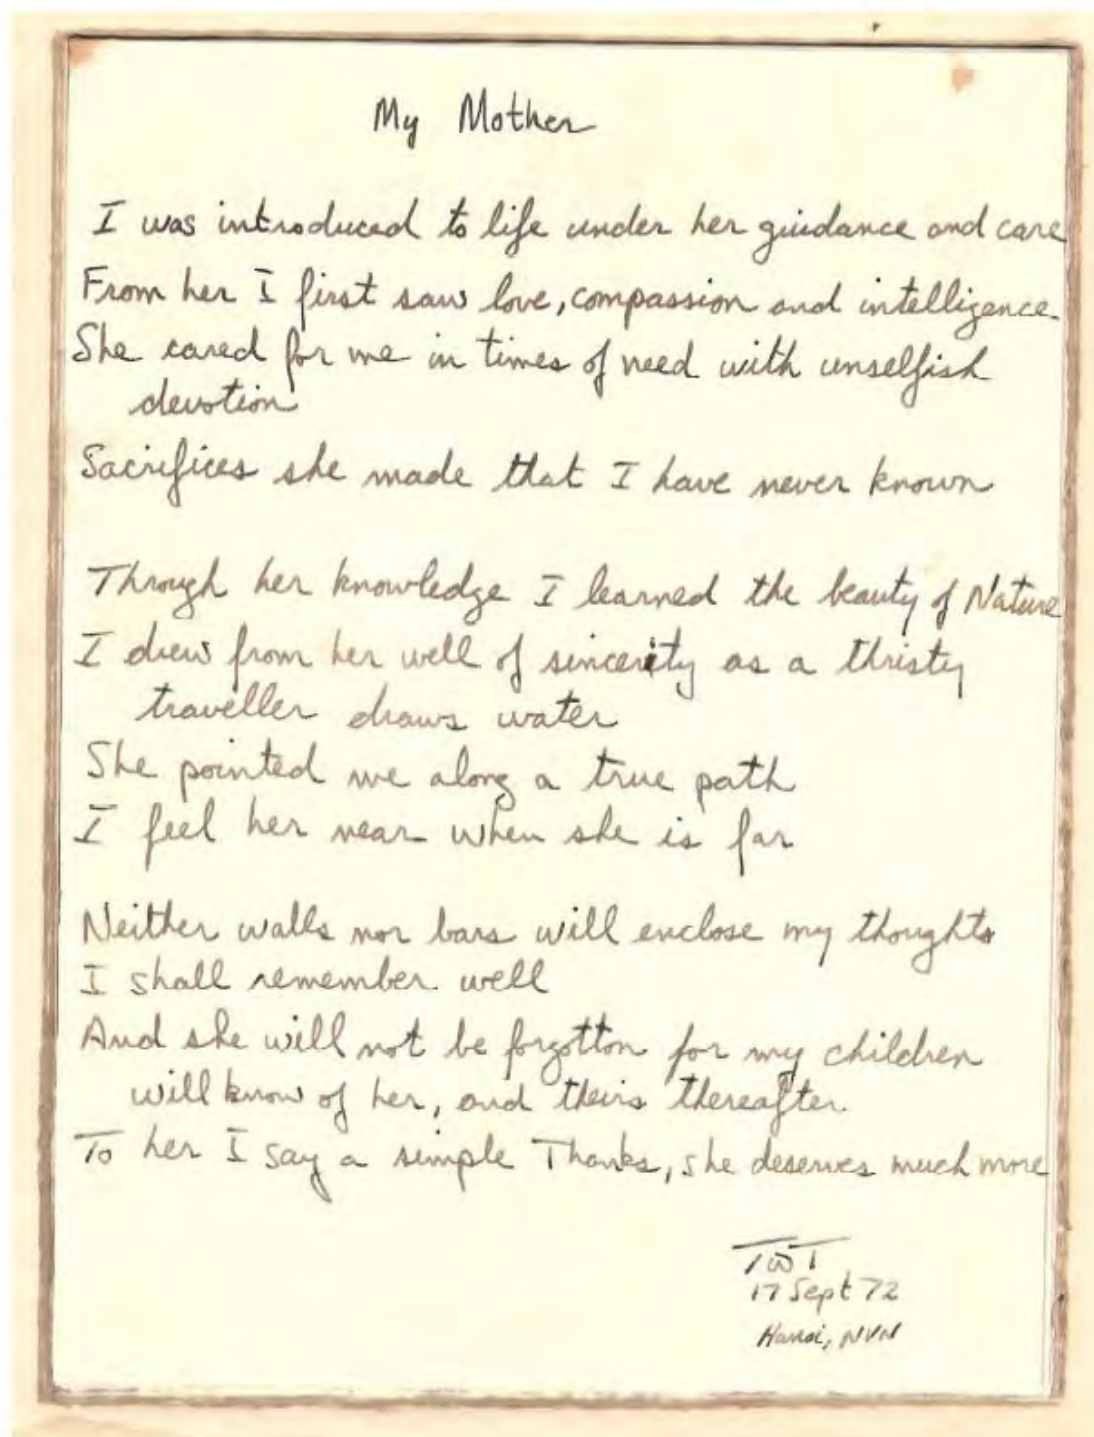 My Mother
I was introduced to life under her guidance and care
From her I first saw love, compassion and intelligence.
She cared for me in times of need with unselfish
devotion
Sacrifices she made that I have never known
Through her knowledge I learned the beauty of Nature
I drew from her well of sincerity as a thristy
traveller draws water
She pointed me along a true path
I feel her near when she is far
Neither walls nor bars will enclose my thoughts
I shall remember well
And she will not be forgotton for my children
will know of her, and theirs thereafter.
To her I say a simple Thanks, she deserves much more
TWT
17 Sept 72
Hanoi, NVN